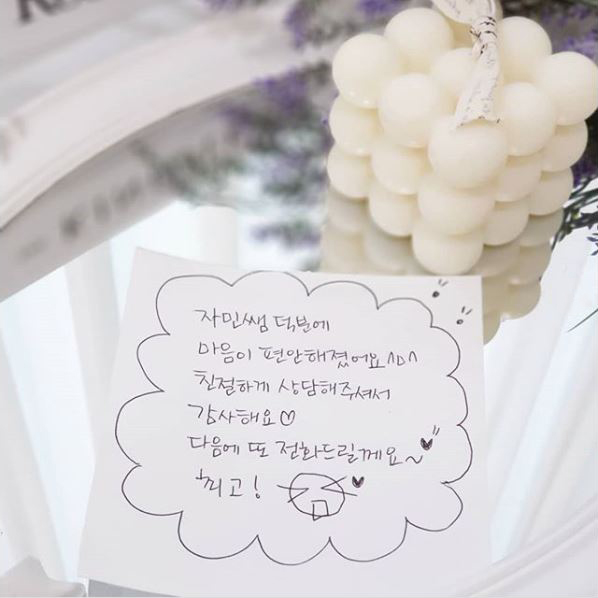 자민쌤 덕분에
마음이 편안해졌어요^o^
친절하게 상담해주셔서
감사해요♡
다음에 또 전화드릴께요~♥
최고!